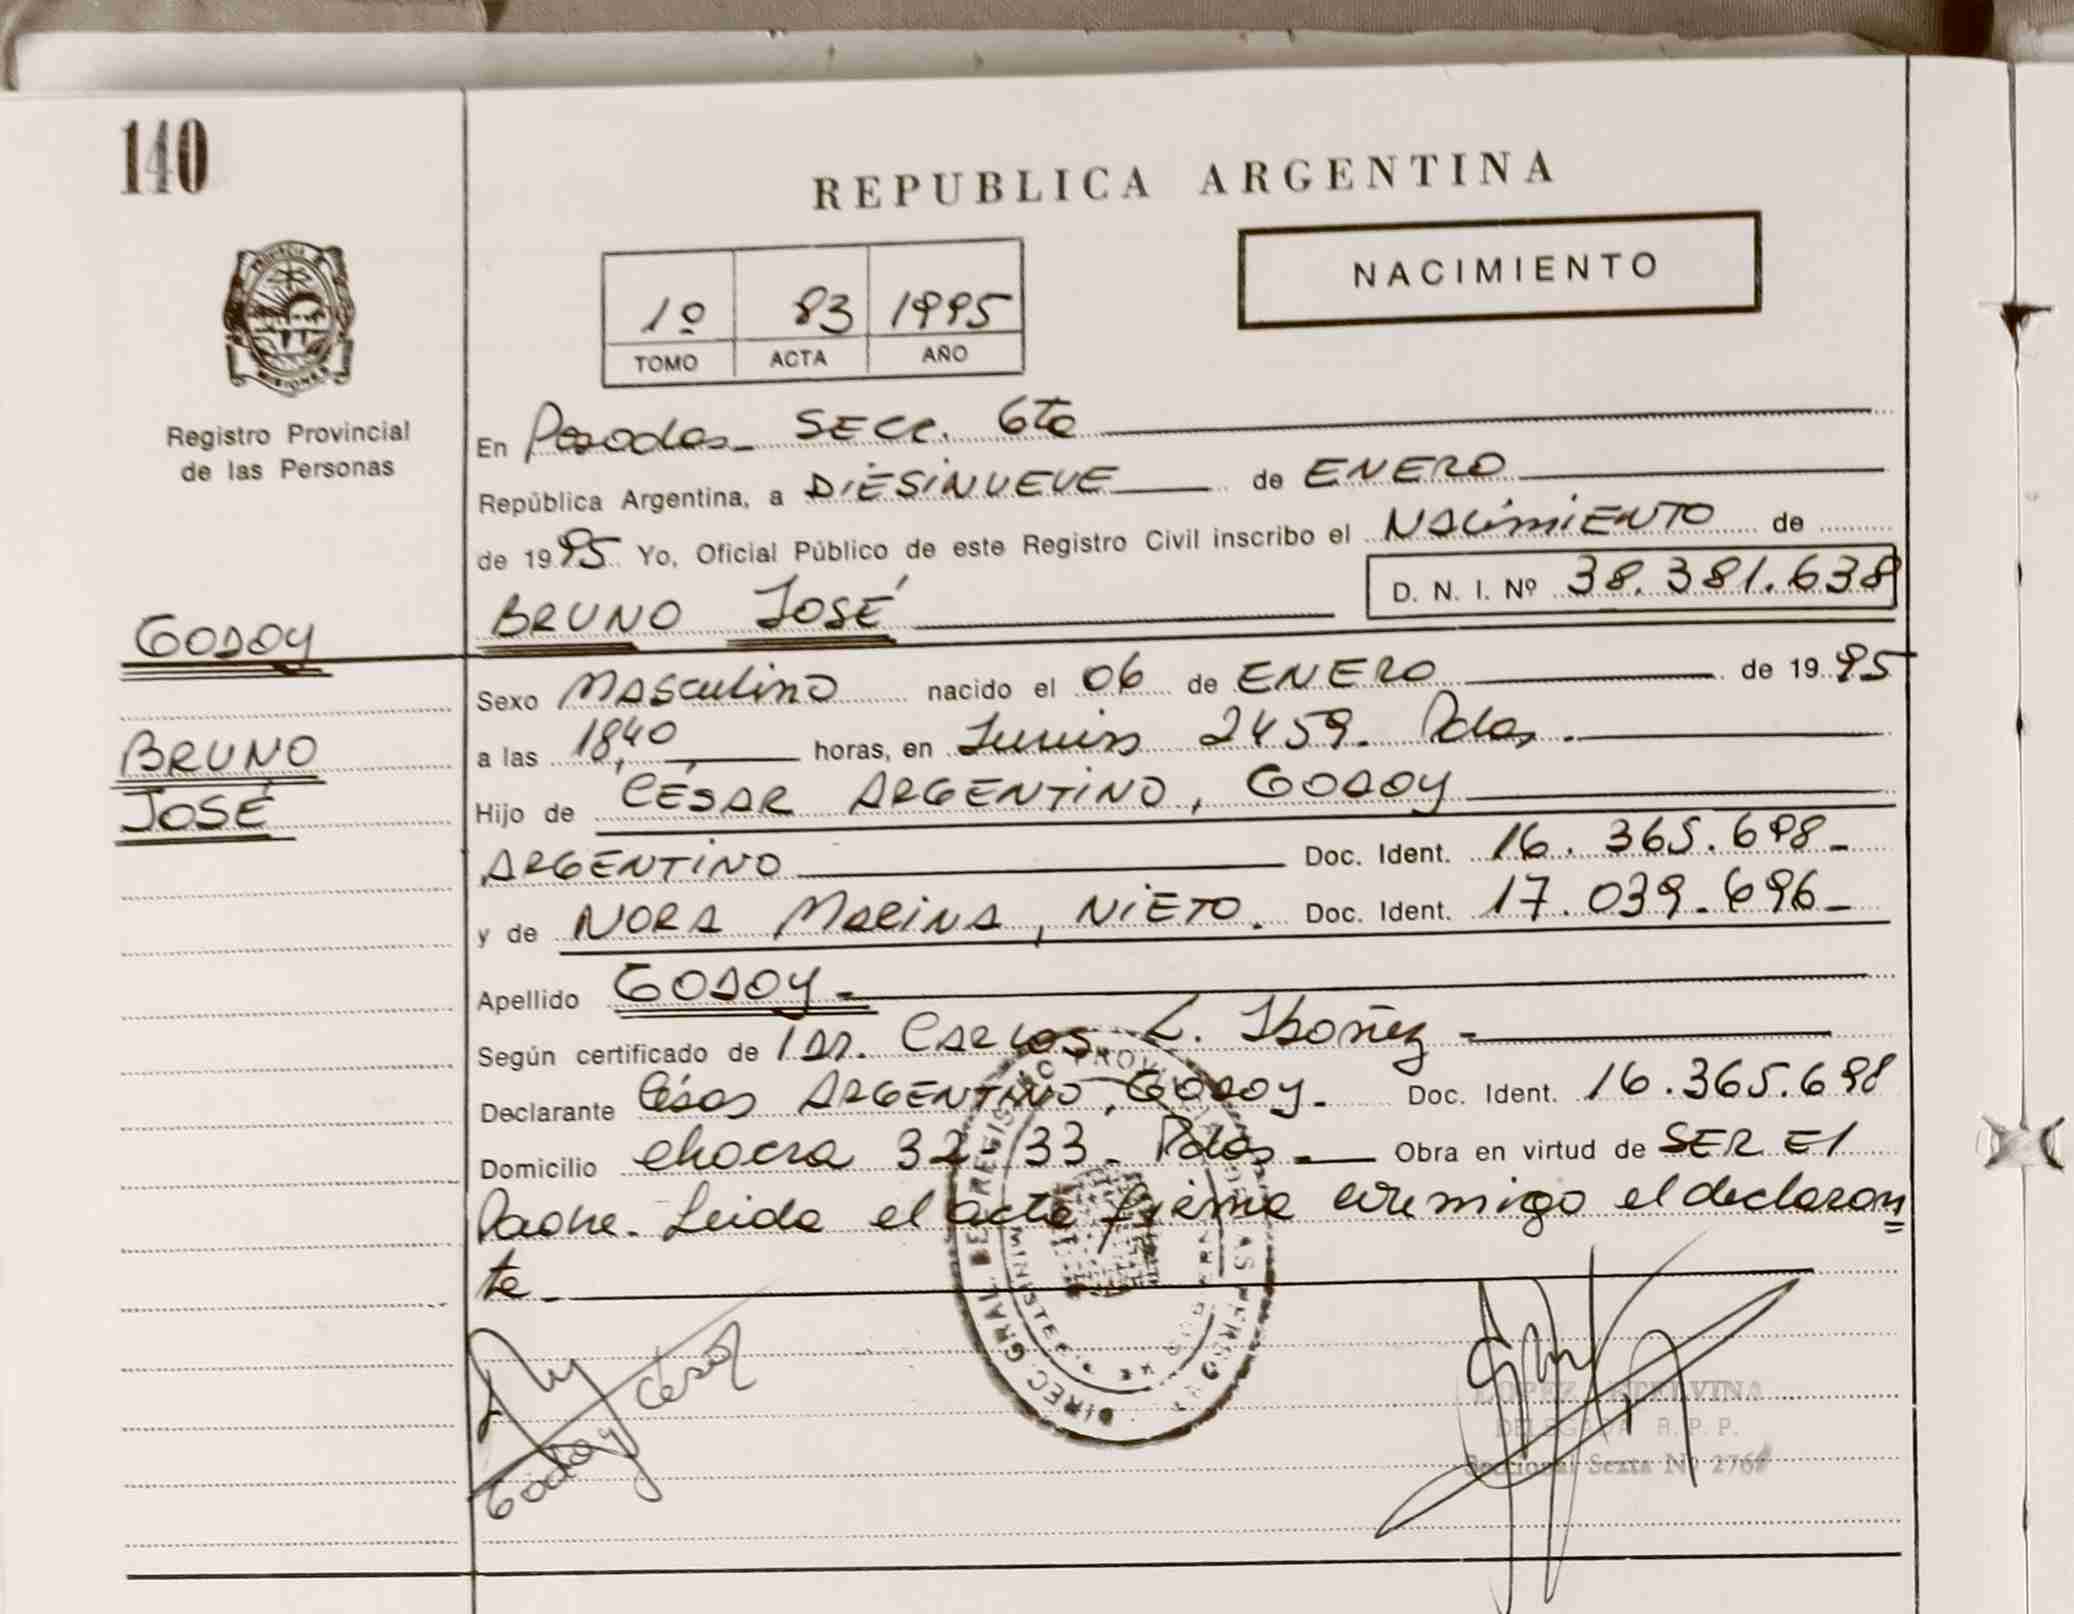 140
REPUBLICA ARGENTINA
NACIMIENTO
1º 83 1995
TOMO ACTA AÑO
PROVINCIA
MISIONES
Registro Provincial
de las Personas
En Posadas- SECC. 6ta
República Argentina, a DIESINUEVE de ENERO
de 1995 Yo, Oficial Público de este Registro Civil inscribo el NACIMIENTO de
D. N. I. Nº 38.381.638
BRUNO JOSÉ
GODOY
Sexo MASCULINO nacido el 06 de ENERO de 1995
BRUNO
a las 18,40 horas, en Junin 2459. Pdas.
JOSÉ
Hijo de CÉSAR ARGENTINO, GODOY
ARGENTINO Doc. Ident. 16.365.698-
y de NORA MARINA, NIETO. Doc. Ident. 17.039.696-
Apellido GODOY-
Según certificado de Dr. CARLOS L. Ibañez -
Declarante César ARGENTINO, GODOY.- Doc. Ident. 16.365.698
Domicilio chacra 32/33- Pdas- Obra en virtud de SER El
Padre. Leida el acta firma conmigo el declaran
te-
Godoy César
LOPEZ ETELVINA
DELEGADA R. P. P.
Seccional Sexta Nº